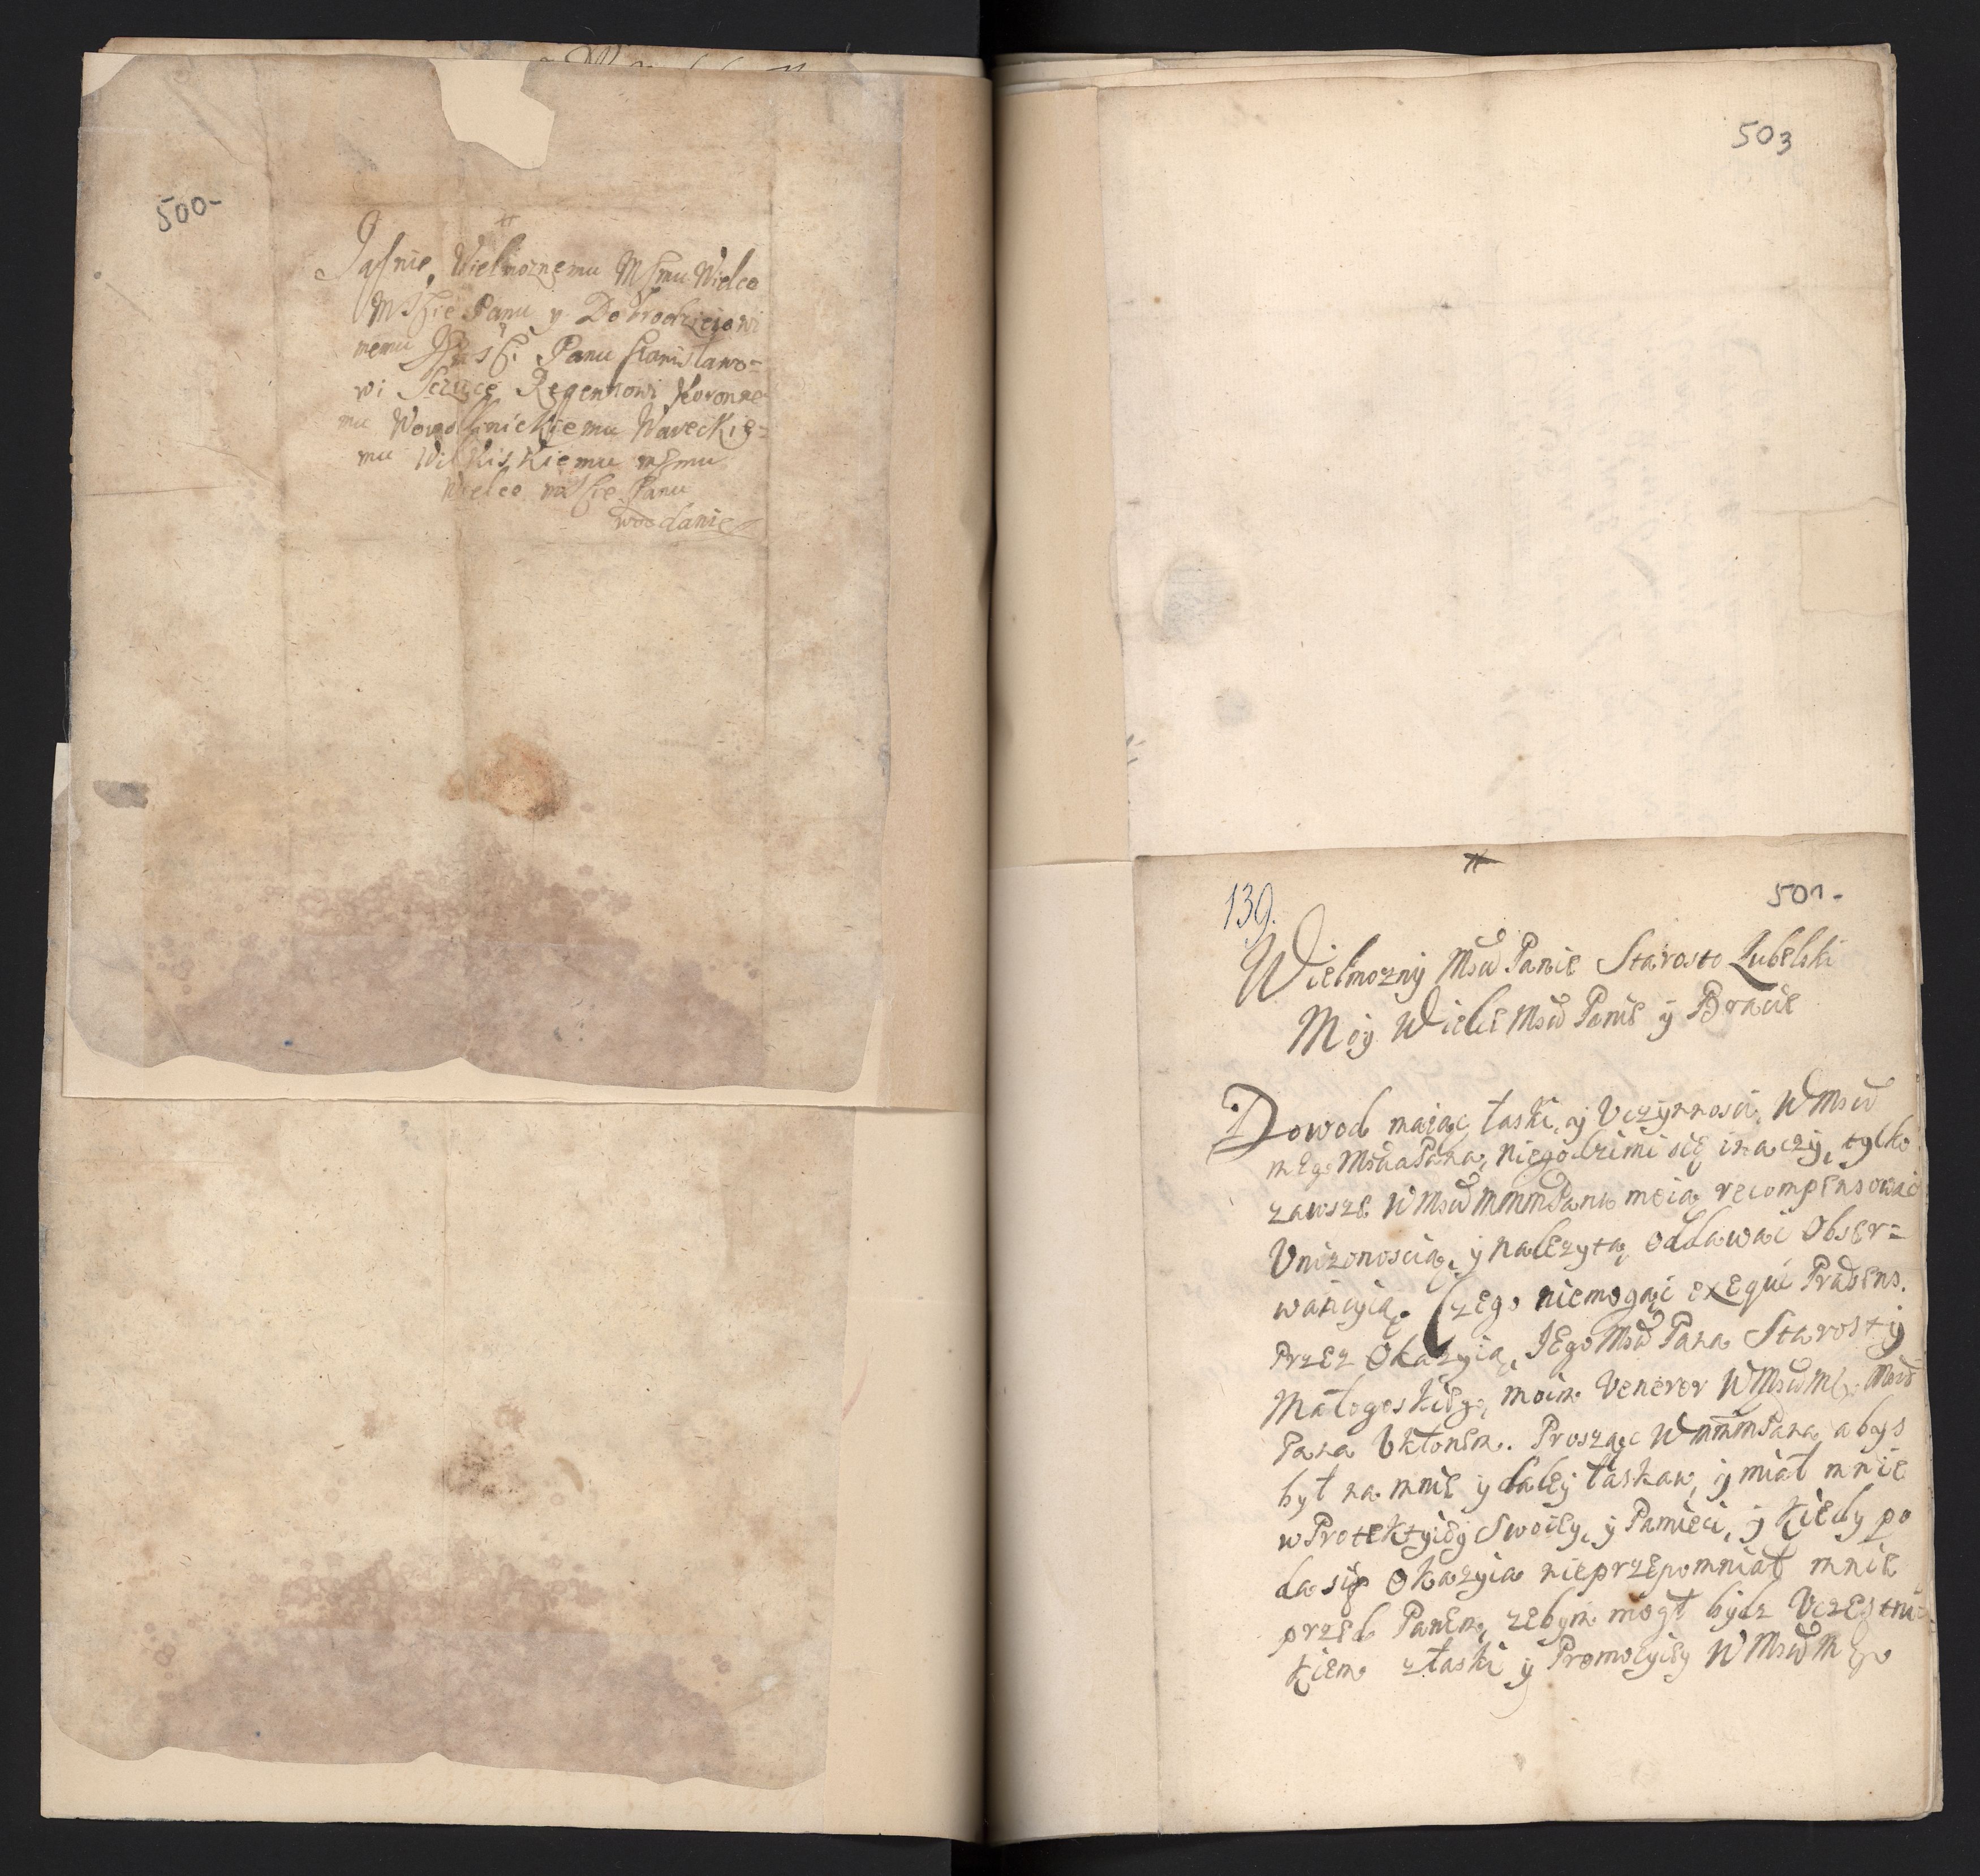 500-
Jasnie Wielmoznemu Msmu Wielce
Msie Panu y Dobrodzieiowi
memu Panu Stanislawo=
wi Sczuce Regentowi Koronne
mu Wowolnickiemu Wareckie=
mu Wilkiskiemu msmu
Wielce Msie Panu
oddanie
503
139.
501-
Wielmozny Msci Panie Starosto Lubelski
Moy Wielce Msci Panie y Bracie
Dowod maiąc łaski y Vczynnosci WMsci
mego Mscia Pana, niegodzi mi się inaczy, tylko
zawsze WMsci MMMPanu moią recompensowac
Vnizonoscią, y nalezytą oddawac Obser=
wancyią. Czego niemogąc exequi Præsens.
Przez Okazyią, JEgo Msci Pana Starosty
Małogoskiego, moim Veneror WMsci Msci
Pana Vkłonem. Prosząc WMMMPana abys
był na mnie y daley łaskaw, y miał mnie
w Protektyiey Swoiey, y Pamieci, y kiedy po
da się Okazyia nieprzepomniał mnie
przed Panem, zebym mogł bydz Vczestni=
kiem z łaski y Promocyiey WMsci Mgo